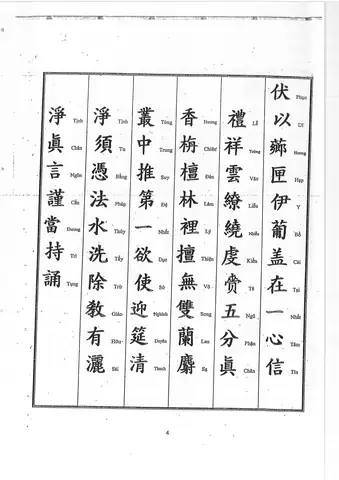 伏以薌匣伊葡盖在一心信
Phục Dĩ Hương Hạp Y Bồ Cái Tại Nhất Tâm Tín
禮祥雲繚繞虔賫五分眞
Lễ Tường Vân Liễu Nhiễu Kiền Tê Ngũ Phận Chân
香栴檀林裡擅無雙蘭麝
Hương Chiên Đàn Lâm Lý Thiện Vô Song Lan Xạ
叢中推第一欲使迎筵清
Tùng Trung Suy Đệ Nhất Dục Sử Nghinh Duyên Thanh
淨須憑法水洗除教有灑
Tịnh Tu Bằng Pháp Thủy Tẩy Trừ Giáo Hữu Sái
淨眞言謹當持誦
Tịnh Chân Ngôn Cẩn Đương Trì Tụng
4